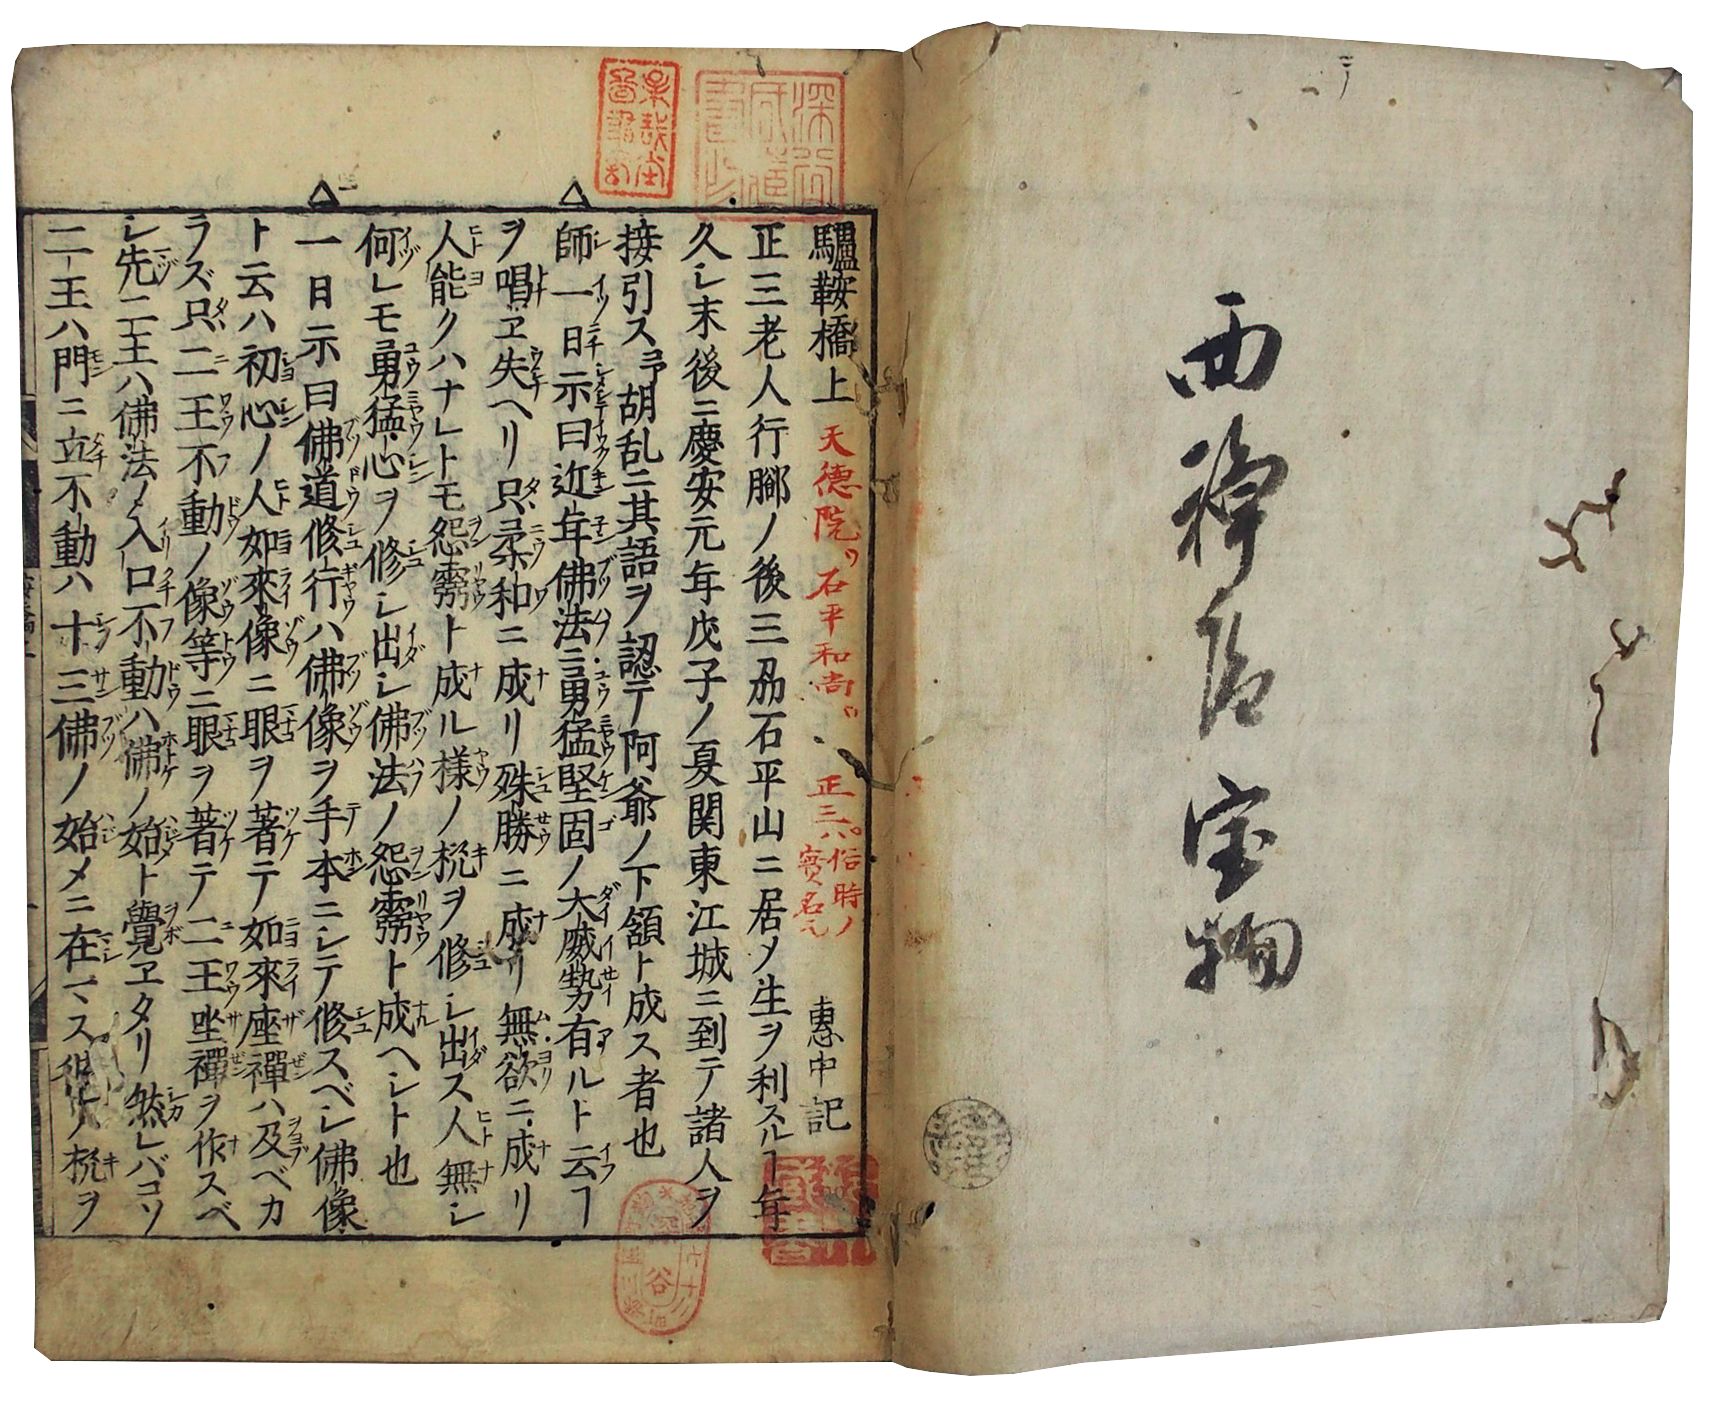 西禅院宝物
驢鞍橋上 天德院ノ石平和尚。正三ハ俗時ノ實名也 惠中記
正三老人行脚ノ後三刕石平山ニ居メ生ヲ利スルヿ年
久シ末後ニ慶安元年戊子ノ夏関東江城ニ到テ諸人ヲ
接引スヿ胡乱ニ其語ヲ認テ阿爺ノ下頷ト成ス者也
師一日示曰近年佛法ニ勇猛堅固ノ大威勢有ルト云ヿ
ヲ唱ヱ失ヘリ只柔和ニ成リ殊勝ニ成リ無欲ニ成リ
人能クハナレトモ怨霊ト成ル様ノ機ヲ修シ出ス人無シ
何レモ勇猛心ヲ修シ出シ佛法ノ怨霊ト成ヘシト也
一日示曰佛道修行ハ佛像ヲ手本ニシテ修スベシ佛像
ト云ハ初心ノ人如來像ニ眼ヲ著テ如來座禪ハ及ベカ
ラズ只二王不動ノ像等ニ眼ヲ著テ二王坐禪ヲ作スベ
シ先二王ハ佛法ノ入口不動ハ佛ノ始ト覺ヱタリ然レバコソ
二王ハ門ニ立不動ハ十三佛ノ始メニ在マス彼ノ機ヲ